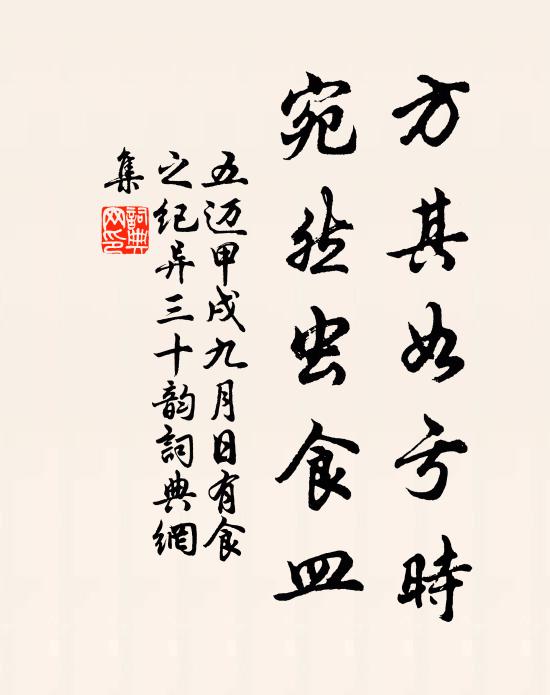 方其如亏時
宛然虫食皿
五迈甲戌九月日有食
之纪异三十韵詞典網
集
詞典
网印